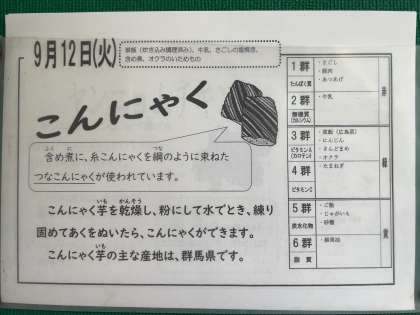 9月12日(火)
牛乳、さごしの
含め煮、オクラのいためもの
こんにゃく
含め煮に、糸こんにゃくを綱のように束ねた
つなこんにゃくが使われています。
こんにゃく芋を乾燥し、粉にして水でとき、練り
固めてあくをぬいたら、こんにゃくができます。
こんにゃく芋の主な産地は、群馬県です。
1群
たんぱく質
・さごし
・豚肉
・あつあげ
赤
2群
無機質
(カルシウム)
・牛乳
3群
ビタミンA
(カロテン)
・にんじん
・さんどまめ
・オクラ
緑
4群
ビタミンC
・たまねぎ
5群
炭水化物
・ご飯
・じゃがいも
・砂糖
黄
6群
脂質